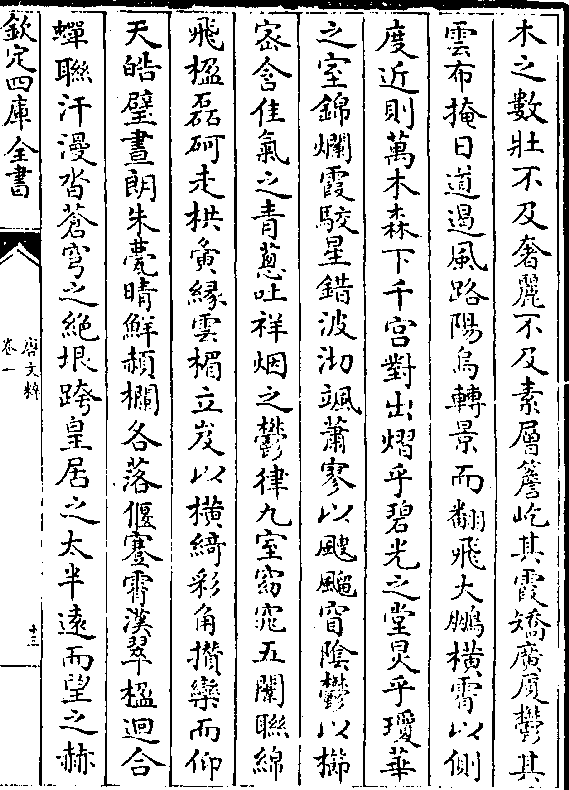 木之數壯不及奢麗不及素層簷屹其霞矯廣厦鬱其
雲布掩日道遏風路陽烏轉景而翻飛大鵬橫霄以側
度近則萬木森下千宮對出熠乎碧光之堂炅乎瓊華
之室錦爛霞駮星錯波沏颯蕭寥以颼飀窅陰鬱以櫛
宻含佳氣之青蔥吐祥烟之鬱律九室窈窕五闈聯綿
飛楹磊砢走栱夤緣雲楣立岌以橫綺彩角攢欒而仰
天皓壁晝朗朱甍晴鮮赬欄各落偃蹇霄漢翠楹迴合
蟬聯汗漫沓蒼穹之絶垠跨皇居之太半遠而望之赫
欽定四庫全書
唐文粹
卷一
十三